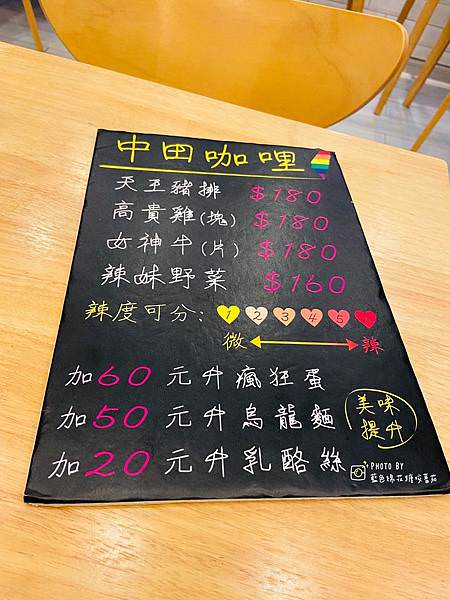 中田咖哩
天王豬排 $180
高貴雞(塊) $180
女神牛(片) $180
辣妹野菜 $160
辣度可分: 1 2 3 4 5
微 辣
加60元升瘋狂蛋
加50元升烏龍麵
加20元升乳酪絲
美味
提升
PHOTO BY